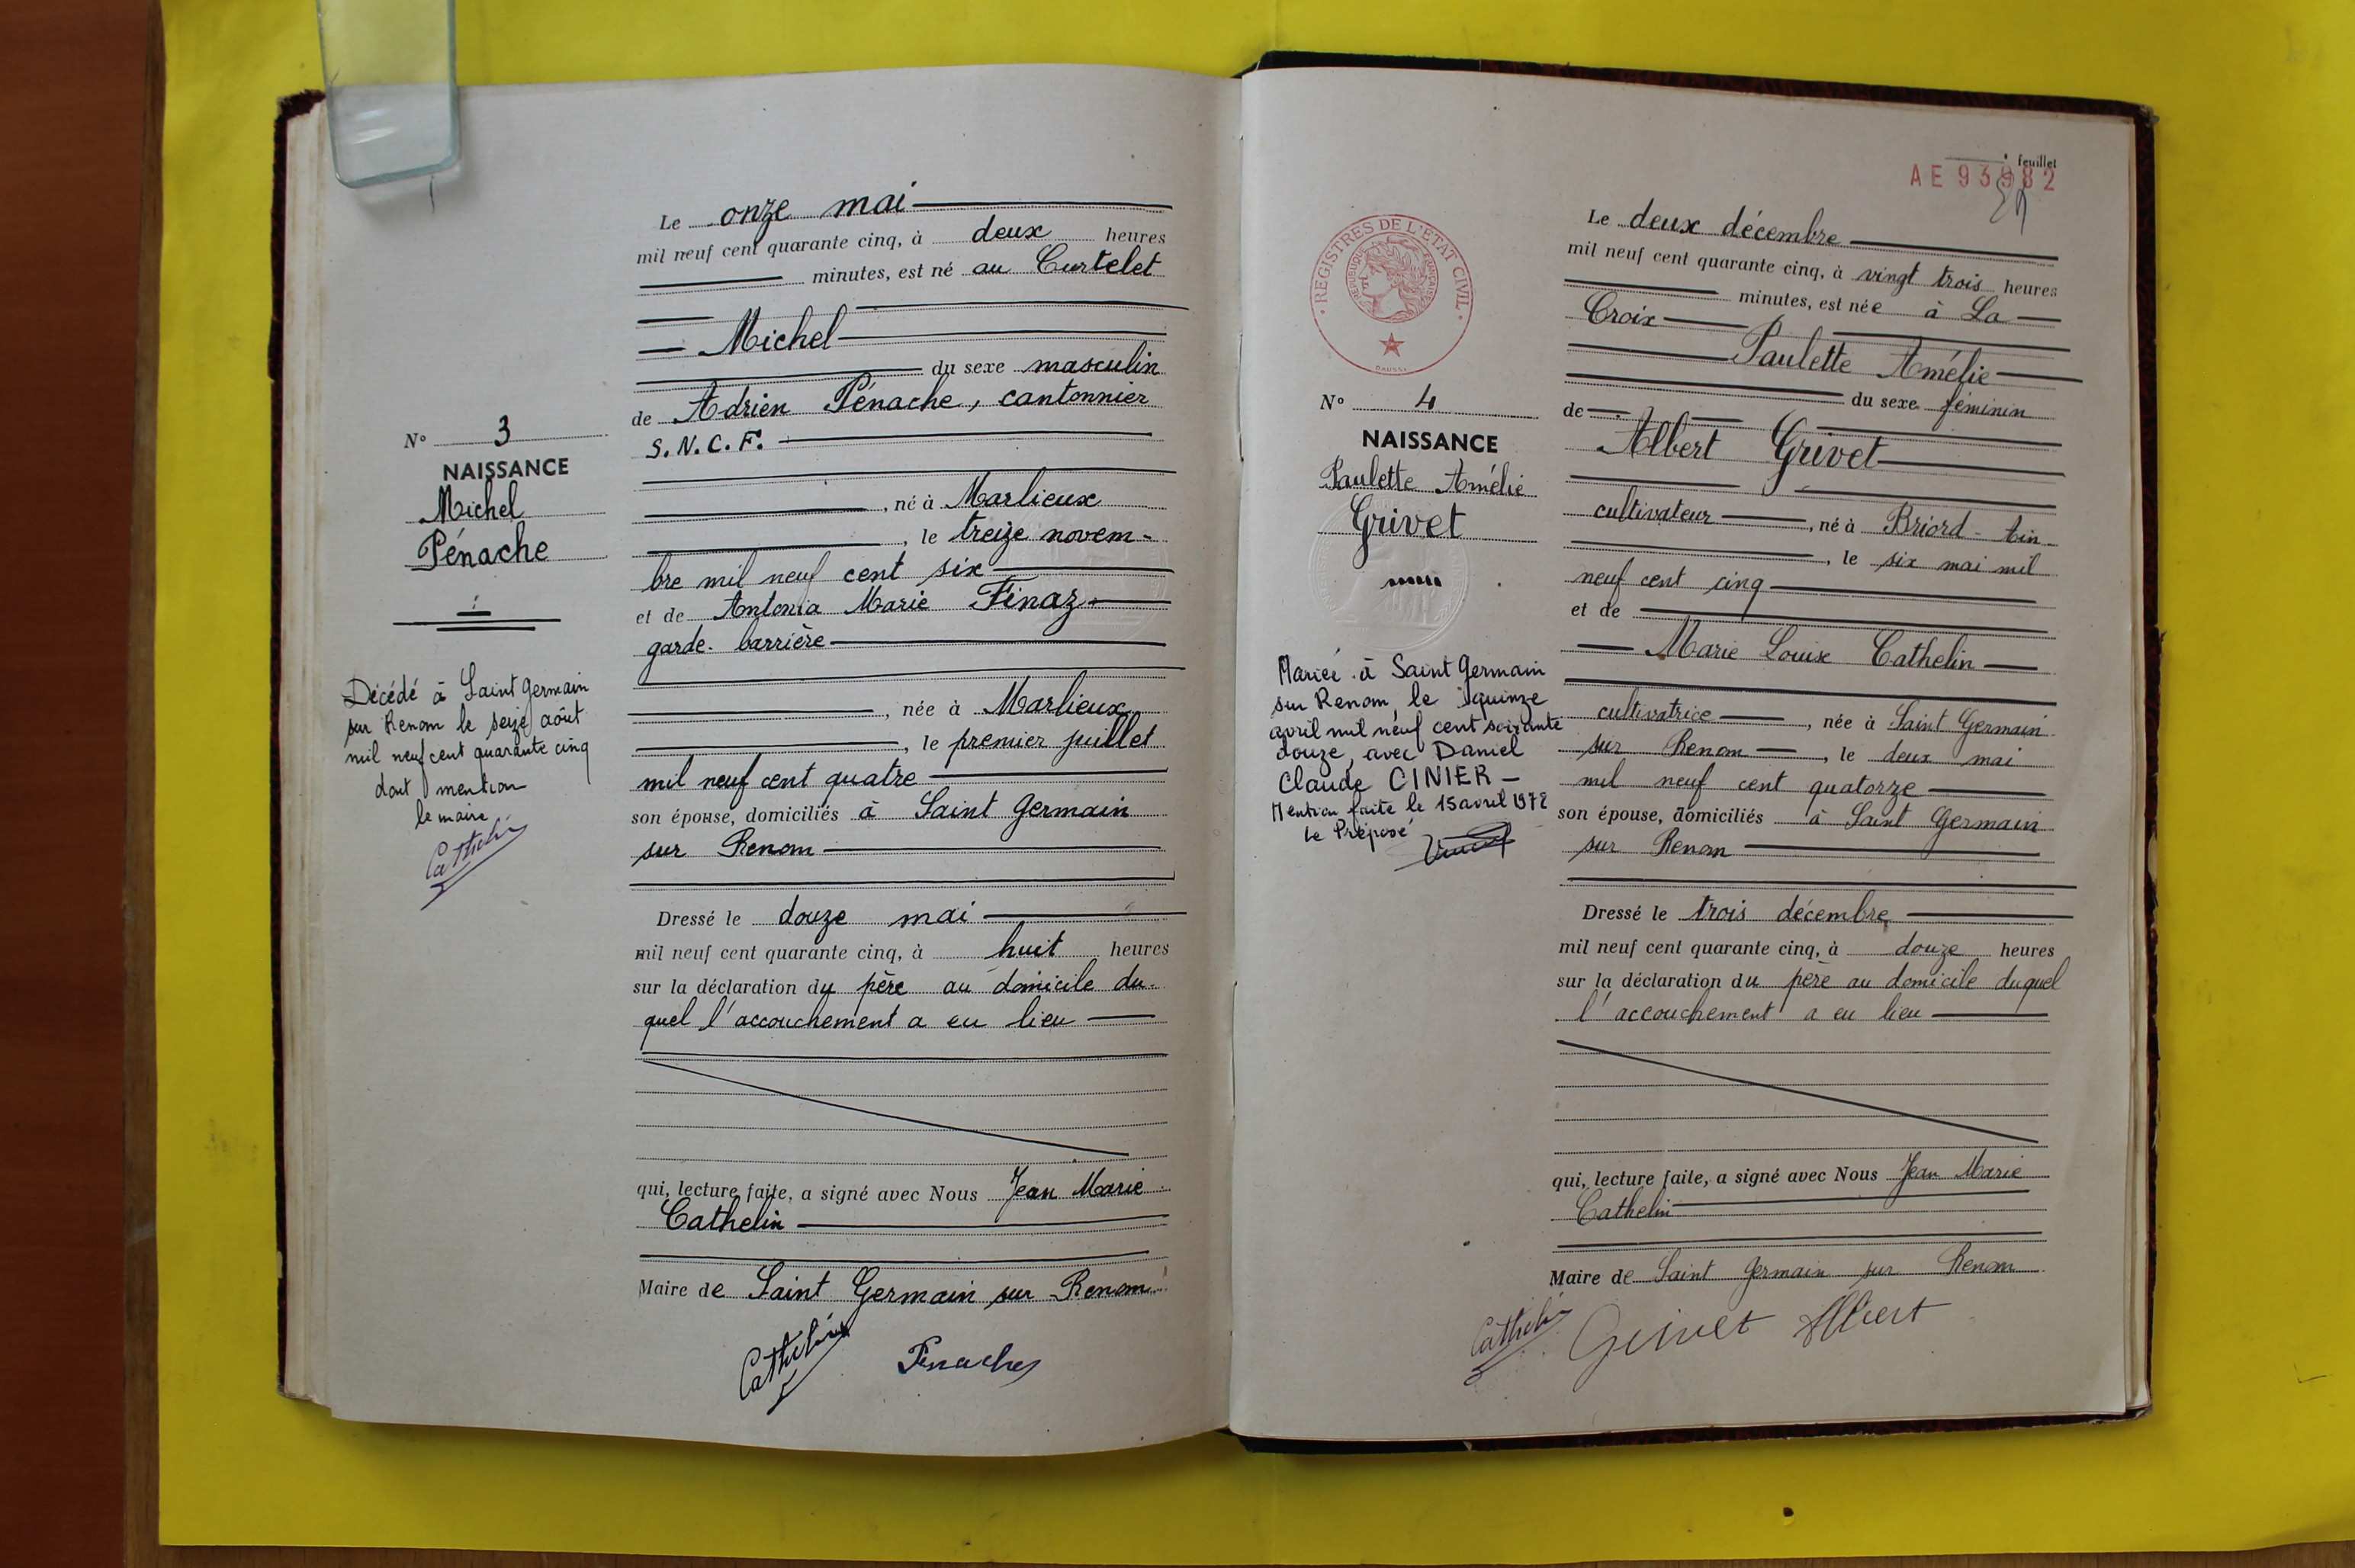 Le onze mai
mil neuf cent quarante cinq, à deux heures
minutes, est né au Curtelet
Michel
du sexe masculin
de Adrien Pénache, cantonnier
S.N.C.F.
, né à Marlieux
, le treize novem-
bre mil neuf cent six
et de Antonia Marie Finaz
garde-barrière
, née à Marlieux
, le premier juillet
mil neuf cent quatre
son épouse, domiciliés à Saint Germain
sur Renom
Dressé le douze mai
mil neuf cent quarante cinq, à huit heures
sur la déclaration du père au domicile du-
quel l'accouchement a eu lieu
qui, lecture faite, a signé avec Nous Jean Marie
Cathelin
Maire de Saint Germain sur Renom
Cathelin Penache
N° 3
NAISSANCE
Michel
Pénache
Décédé à Saint Germain
sur Renom le seize août
mil neuf cent quarante cinq
dont mention
le maire
Cathelin
feuillet
AE 93982
REGISTRES DE L'ETAT CIVIL
REPUBLIQUE FRANÇAISE
N° 4
NAISSANCE
Paulette Amélie
Grivet
Mariée à Saint Germain
sur Renom, le quinze
avril mil neuf cent soixante
douze, avec Daniel
Claude CINIER -
Mention faite le 15 avril 1972
Le Préposé
Le deux décembre
mil neuf cent quarante cinq, à vingt trois heures
minutes, est née à La
Croix
Paulette Amélie
du sexe féminin
de
Albert Grivet
cultivateur, né à Briord - Ain -
, le six mai mil
neuf cent cinq
et de
Marie Louise Cathelin
cultivatrice, née à Saint Germain
sur Renom, le deux mai
mil neuf cent quatorze
son épouse, domiciliés à Saint Germain
sur Renom
Dressé le trois décembre
mil neuf cent quarante cinq, à douze heures
sur la déclaration du père au domicile duquel
l'accouchement a eu lieu
qui, lecture faite, a signé avec Nous Jean Marie
Cathelin
Maire de Saint Germain sur Renom
Cathelin Grivet Albert